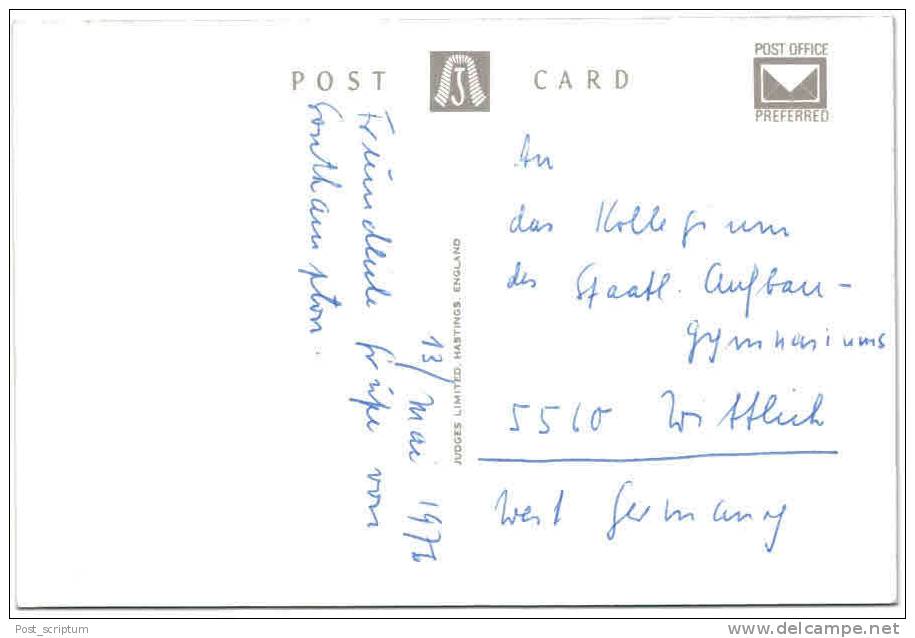 POST CARD
POST OFFICE
PREFERRED
13/ Mai 1971
Freundliche Grüße von
Southampton.
JUDGES LIMITED, HASTINGS, ENGLAND
An
das Kollegium
des Staatl. Aufbau-
gymnasiums
5560 Wittlich
West Germany
Post_scriptum
delcampe.net